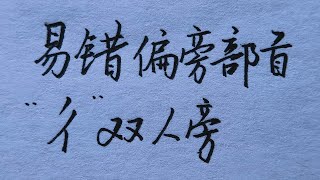 易错偏旁部首
"彳"双人旁